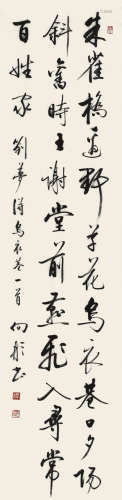 朱雀橋邊野草花烏衣巷口夕陽
斜舊時王謝堂前燕飛入尋常
百姓家 劉夢得烏衣巷一首